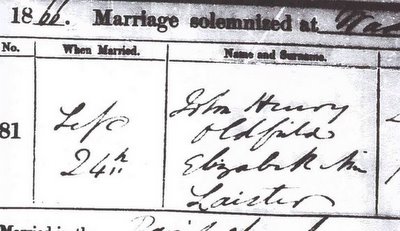 1866. Marriage solemnized at
No. When Married. Name and Surname.
81 Sep John Henry
Oldfield
24th Elizabeth Ann
Laister
Married in the